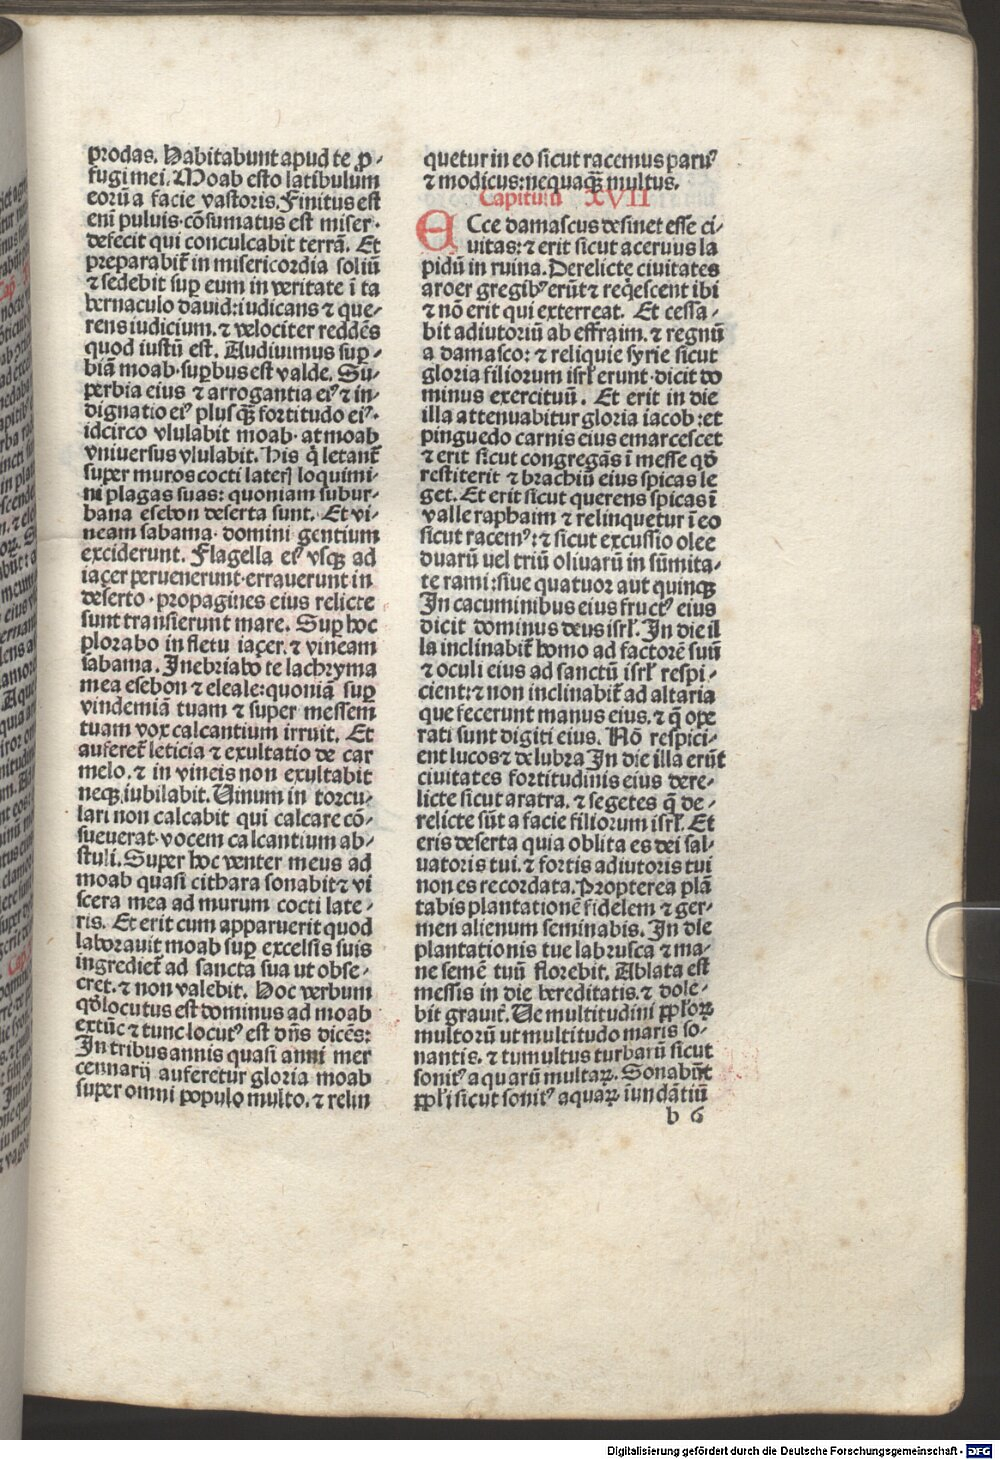 prodas. Habitabunt apud te ꝓ⸗
fugi mei. Moab esto latibulum
eorū a facie vastoris. Finitus est
eni puluis·cōsumatus est miser·
defecit qui conculcabit terrā. Et
preparabit̄ in misericordia soliū
⁊ sedebit suꝑ eum in veritate ī ta
bernaculo dauid: iudicans ⁊ que⸗
rens iudicium. ⁊ velociter reddēs
quod iustū est. Audiuimus suꝑ⸗
biā moab·suꝑbus est valde. Su⸗
perbia eius ⁊ arrogantia eiꝰ ⁊ in⸗
dignatio eiꝰ plusqꝫ fortitudo eiꝰ·
idcirco vlulabit moab· at moab
vniuersus vlulabit. His q̇ letant̄
super muros cocti laterꝭ loquimi⸗
ni plagas suas: quoniam subur⸗
bana esebon deserta sunt. Et vi⸗
neam sabama· domini gentium
exciderunt. Flagella eiꝰ vsqꝫ ad
iaçer peruenerunt·errauerunt in
deserto·propagines eius relicte
sunt transierunt mare. Suꝑ hoc
plorabo in fletu iaçer. ⁊ vineam
sabama. Inebriabo te lachryma
mea esebon ⁊ eleale: quoniā suꝑ
vindemiā tuam ⁊ super messem
tuam vox calcantium irruit. Et
auferet̄ leticia ⁊ exultatio de car
melo. ⁊ in vineis non exultabit
neqꝫ iubilabit. Uinum in torcu⸗
lari non calcabit qui calcare cō⸗
sueuerat·vocem calcantium ab⸗
stuli. Super hoc venter meus ad
moab quasi cithara sonabit ⁊ vi
scera mea ad murum cocti late⸗
ris. Et erit cum apparuerit quod
laborauit moab suꝑ excelsis suis
ingrediet̄ ad sancta sua ut obse⸗
cret. ⁊ non valebit. Hoc verbum
qḋ locutus est dominus ad moab
extūc ⁊ tunc locutꝰ est dn̄s dicēs:
In tribus annis quasi anni mer
cennarij auferetur gloria moab
super omni populo multo. ⁊ relin
quetur in eo sicut racemus paruꝰ
⁊ modicus: nequaqꝫ̄ multus.
Capitulū XVII
ECce damascus desinet esse ci⸗
uitas: ⁊ erit sicut aceruus la
pidū in ruina. Derelicte ciuitates
aroer gregibꝰ erūt ⁊ reqˈescent ibi
⁊ nō erit qui exterreat. Et cessa⸗
bit adiutoriū ab effraim. ⁊ regnū
a damasco: ⁊ reliquie syrie sicut
gloria filiorum isrl̄ erunt·dicit do
minus exercituū. Et erit in die
illa attenuabitur gloria iacob: et
pinguedo carnis eius emarcescet
⁊ erit sicut congregās ī messe qḋ
restiterit ⁊ brachiū eius spicas le
get. Et erit sicut querens spicas ī
valle raphaim ⁊ relinquetur ī eo
sicut racemꝰ: ⁊ sicut excussio olee
duarū uel triū oliuarū in sūmita⸗
te rami: siue quatuor aut quinqꝫ
In cacuminibus eius fructꝰ eius
dicit dominus deus isrl̄. In die il
la inclinabit̄ homo ad factorē suū
⁊ oculi eius ad sanctū isrl̄ respi⸗
cient: ⁊ non inclinabit̄ ad altaria
que fecerunt manus eius. ⁊ q̄ ope
rati sunt digiti eius. Nō respici⸗
ent lucos ⁊ delubra In die illa erūt
ciuitates fortitudinis eius dere⸗
licte sicut aratra. ⁊ segetes q̄ de⸗
relicte sūt a facie filiorum isrl̄. Et
eris deserta quia oblita es dei sal⸗
uatoris tui. ⁊ fortis adiutoris tui
non es recordata. Propterea plā
tabis plantationē fidelem ⁊ ger⸗
men alienum seminabis. In die
plantationis tue labrusca ⁊ ma⸗
ne semē tuū florebit. Ablata est
messis in die hereditatis. ⁊ dole⸗
bit grauit̄. Ue multitudini ppl̄oꝝ
multorū ut multitudo maris so⸗
nantis. ⁊ tumultus turbarū sicut
sonitꝰ aquarū multaꝝ. Sonabūt
ppl̄i sicut sonitꝰ aquaꝝ īundātiū
b 6
Digitalisierung gefördert durch die Deutsche Forschungsgemeinschaft - DFG